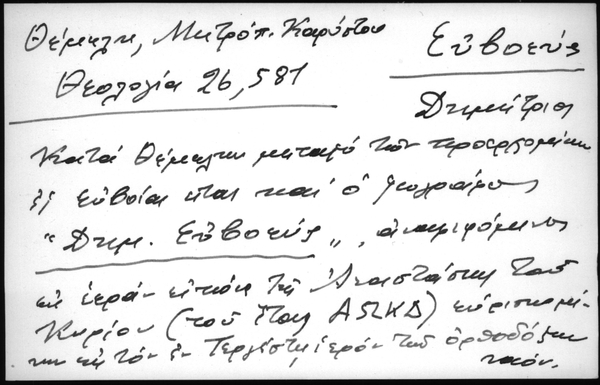 Θέμελη, Μητρόπ. Καρύστου
Εὐβοεύς
Θεολογία 26, 581
Δημήτριος
Κατά Θέμελην μεταξύ τῶν προερχομένων
ἐξ Εὐβοίας ἦτο καί ὁ ζωγράφος
"Δημ. Εὐβοεύς", ἀναφερόμενος
εἰς ἱεράν εἰκόνα τῆς Ἀναστάσεως τοῦ
Κυρίου (τοῦ ἔτους ΑΩΚΔ) εὑρισκομέ-
νην εἰς τόν ἐν Τεργέστῃ ἱερόν τῶν ὀρθοδόξων
ναόν.